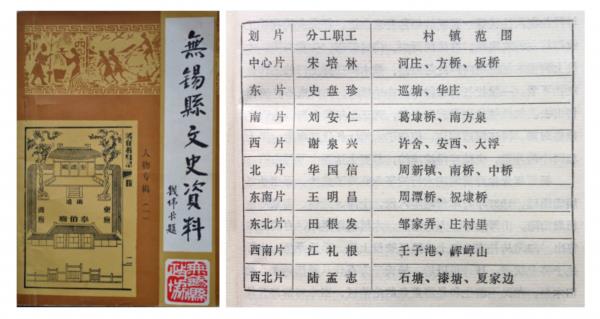 無锡縣文史資料
钱伟长題
人物专辑(一)
泰伯廟
划片 分工职工 村镇范围
中心片 宋培林 河庄、方桥、板桥
东片 史盘珍 巡塘、华庄
南片 刘安仁 葛埭桥、南方泉
西片 谢泉兴 许舍、安西、大浮
北片 华国信 周新镇、南桥、中桥
东南片 王明昌 周潭桥、祝埭桥
东北片 田根发 邹家弄、庄村里
西南片 江礼根 壬子港、嶂山
西北片 陆孟志 石塘、漆塘、夏家边